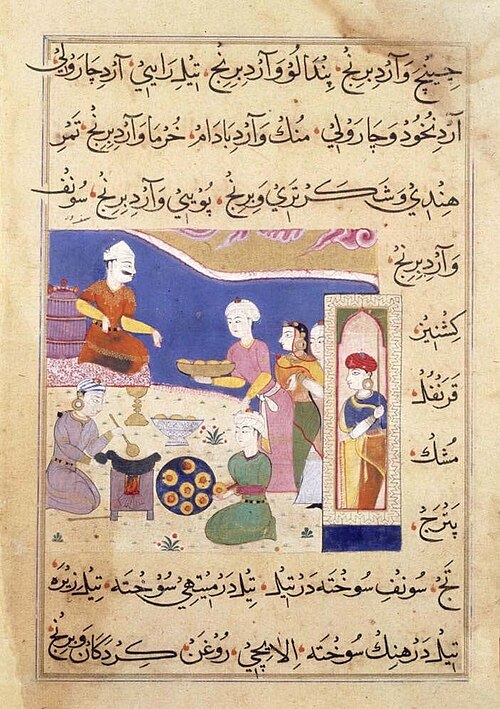 چینچ وآرد برنج، پندالو وآرد برنج، تیل رایی، آرد چارولی
آرد نخود وچارولی، منک وآرد بادام، خرما وآرد برنج، تمر
هندی وشکر تری وبرنج، پویی وآرد برنج، سونف
وآرد برنج
کشنیز
قرنفل
مشک
پترج
تج، سونف سوخته در تیل، تیل در میتهی سوخته، تیل زیره
تیل در هنک سوخته، الایچی، روغن کردکان وبرنج